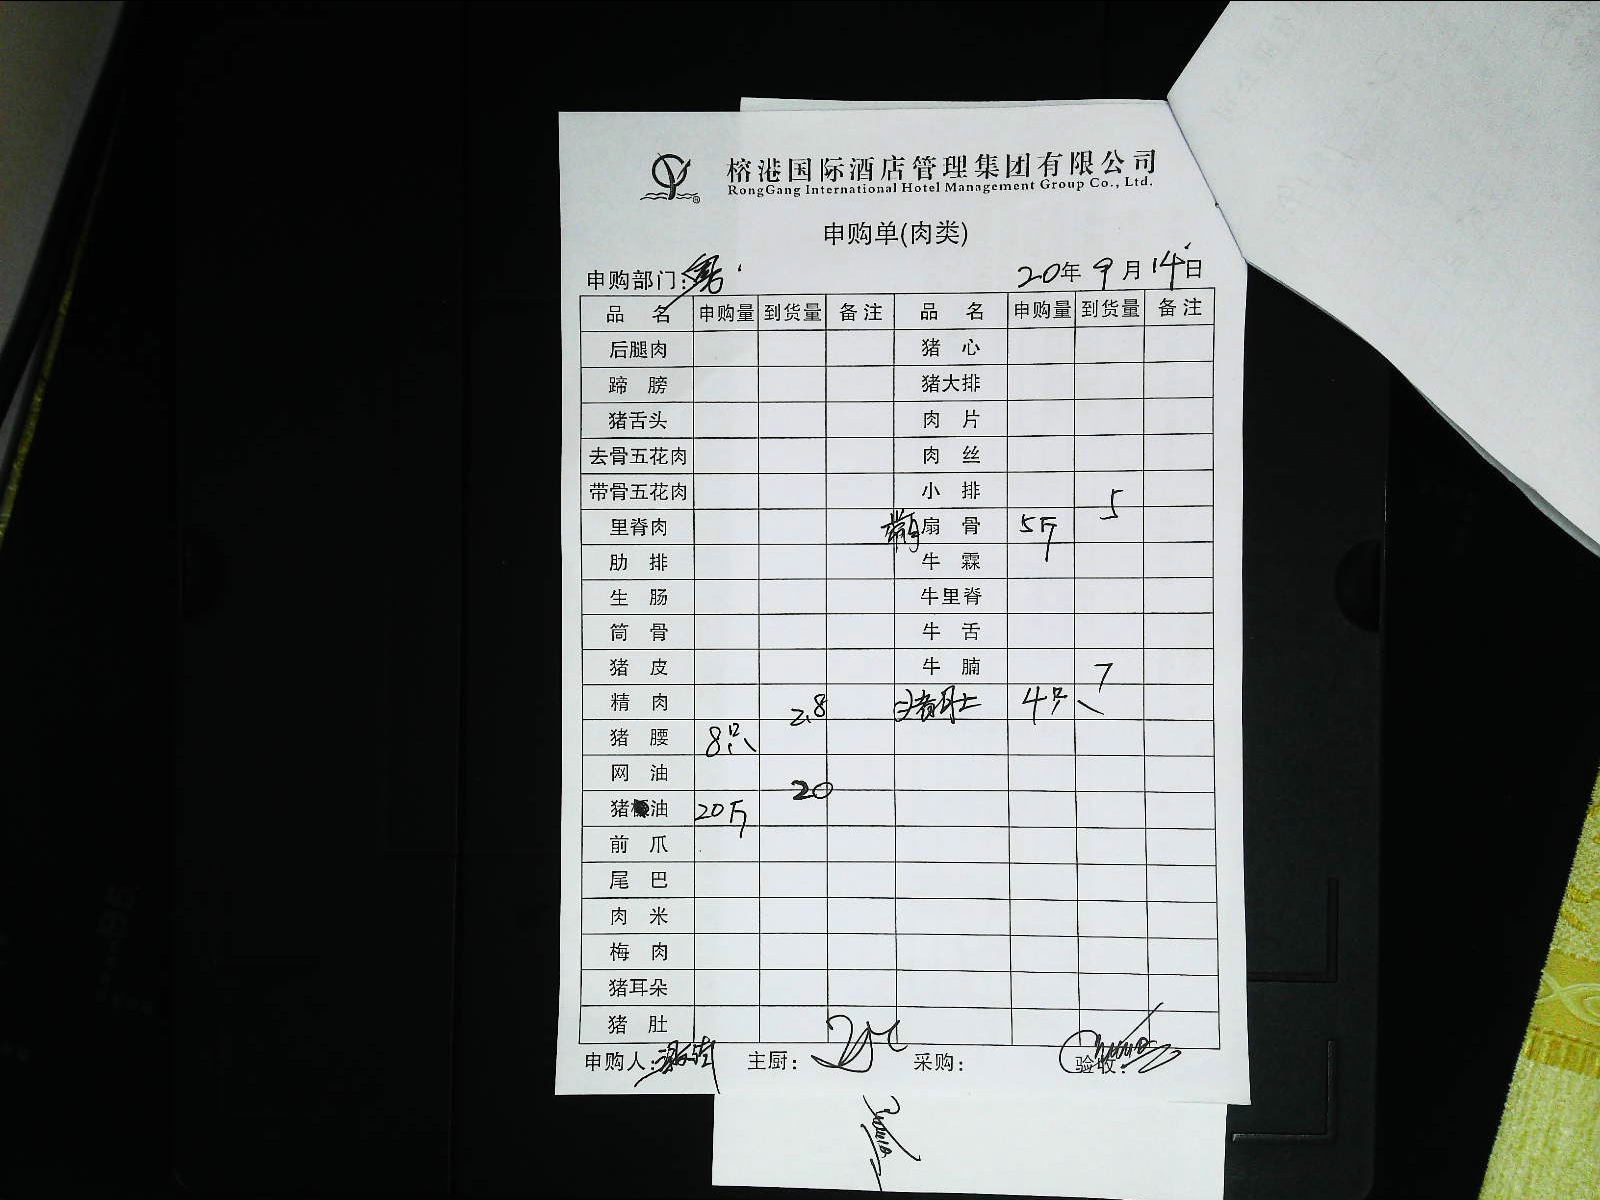 榕港国际酒店管理集团有限公司
RongGang International Hotel Management Group Co., Ltd.
申购单(肉类)
申购部门: 20年 9月 14日
品 名 申购量 到货量 备注 品 名 申购量 到货量 备注
后腿肉 猪 心
蹄 膀 猪大排
猪舌头 肉 片
去骨五花肉 肉 丝
带骨五花肉 小 排
里脊肉 扇 骨 5斤 5
肋 排 牛 霖
生 肠 牛里脊
筒 骨 牛 舌
猪 皮 牛 腩
精 肉 猪肚 4只 7
猪 腰 8只 2.8
网 油
猪油 20斤 20
前 爪
尾 巴
肉 米
梅 肉
猪耳朵
猪 肚
申购人: 主厨: 采购: 验收: